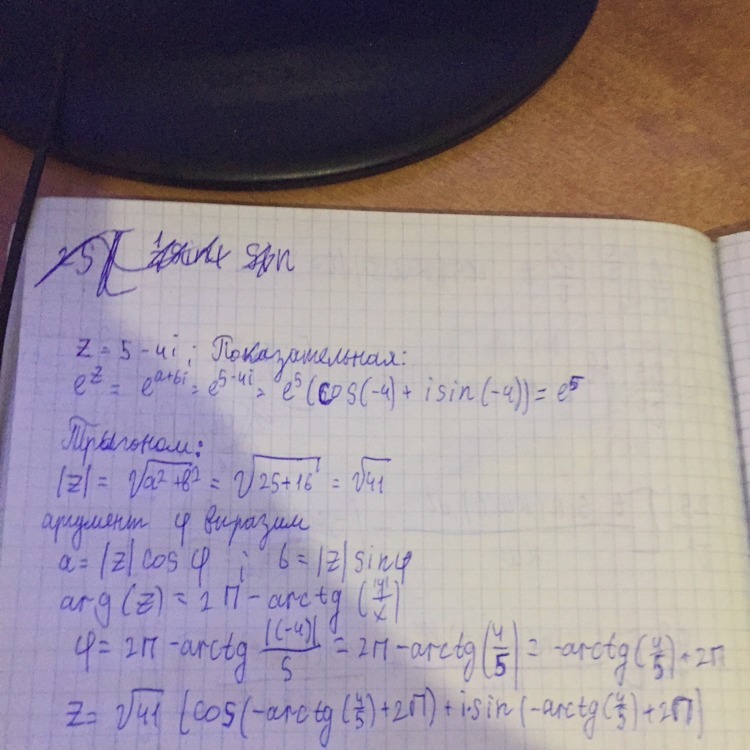 z = 5 - 4i ; Показательная:
e^z = e^{a+bi} = e^{5-4i} = e^5 (cos(-4) + i sin(-4)) = e^5
Трыгоном:
|z| = √(a²+b²) = √(25+16) = √41
аргумент φ выразим
a = |z| cos φ ; b = |z| sin φ
arg(z) = 2π - arctg (|y|/x)
φ = 2π - arctg |(-4)|/5 = 2π - arctg(4/5) = -arctg(4/5) + 2π
z = √41 (cos(-arctg(4/5) + 2π) + i·sin(-arctg(4/5) + 2π)